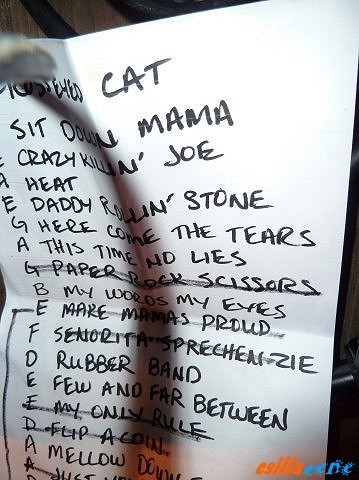 CROSSEYED CAT
SIT DOWN MAMA
E CRAZY KILLIN' JOE
A HEAT
E DADDY ROLLIN' STONE
G HERE COME THE TEARS
A THIS TIME NO LIES
G PAPER ROCK SCISSORS
B MY WORDS MY EYES
E MAKE MAMAS PROUD
F SENORITA SPRECHEN-ZIE
D RUBBER BAND
E FEW AND FAR BETWEEN
E MY ONLY RULE
D FLIP A COIN
A MELLOW DOWN
A JUST
esillazene